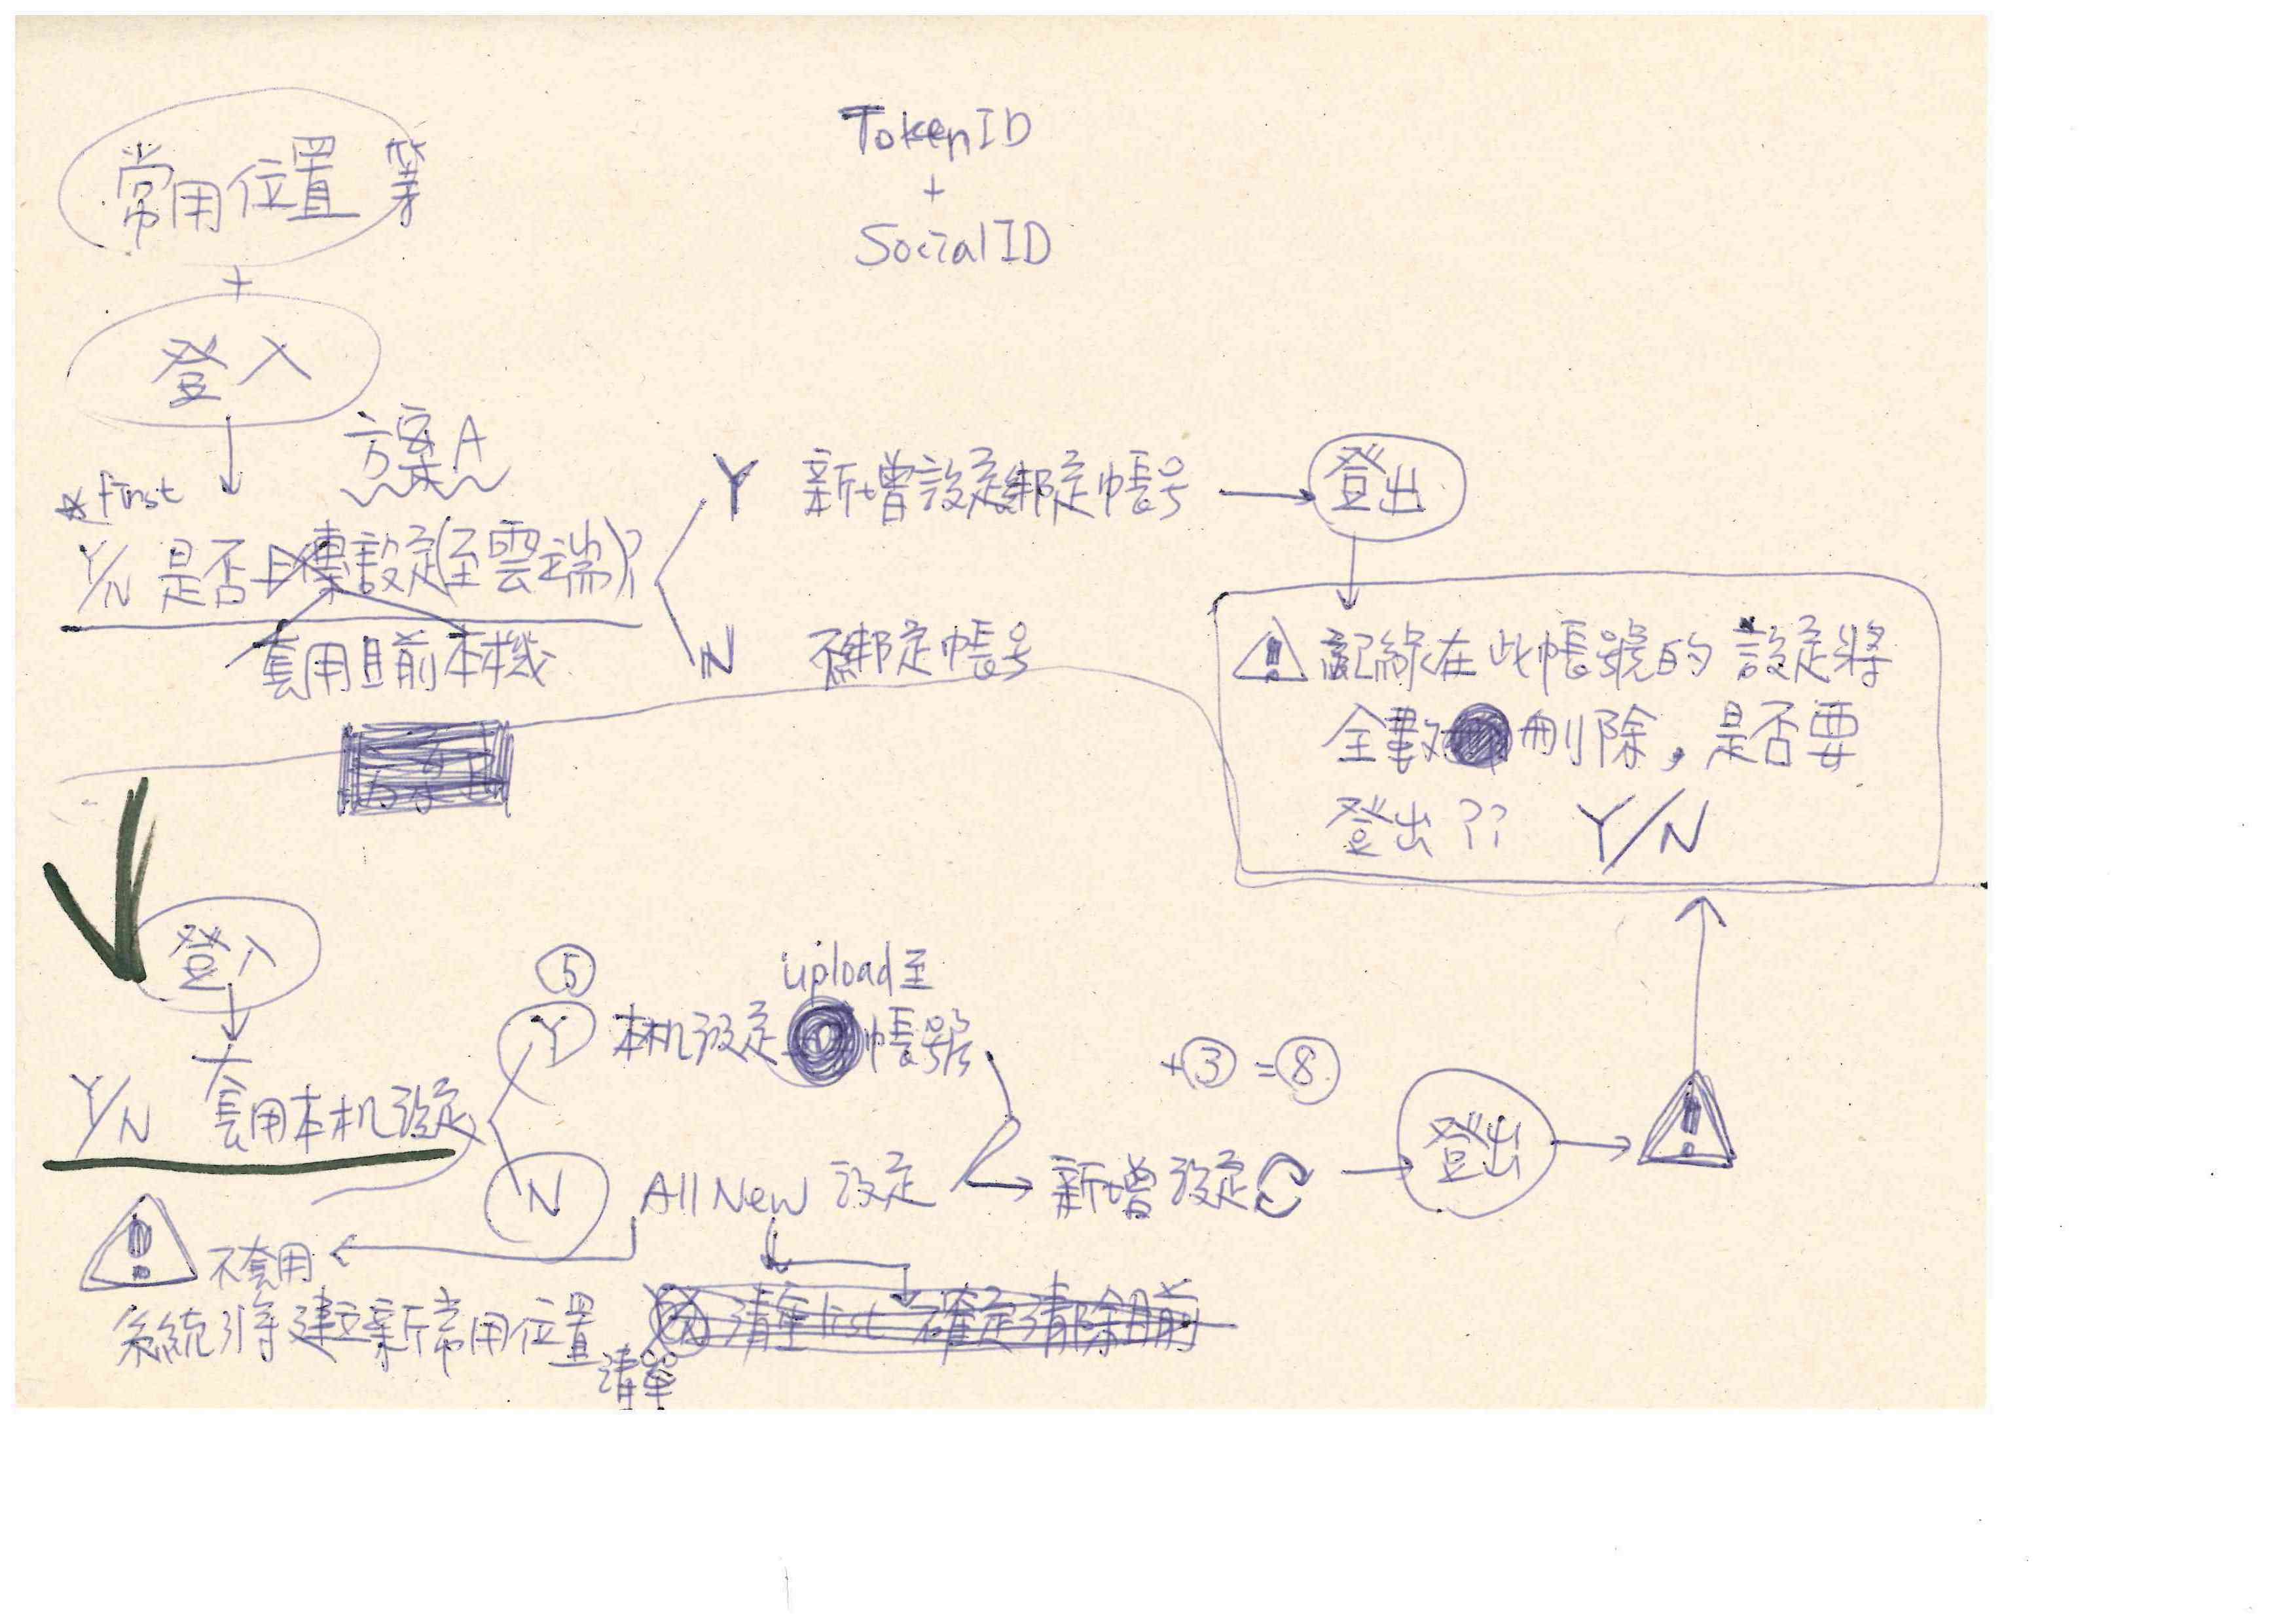 常用位置 等
TokenID
+
SocialID
+
登入
方案A
*first
Y/N 是否上傳設定(至雲端)?
套用目前本機
Y 新增設定綁定帳号
N 不綁定帳号
登出
! 記錄在此帳號的設定將
全數刪除,是否要
登出?? Y/N
登入
Y/N 套用本机設定
⑤
upload至
Y 本机設定 帳號
N All New 設定
+③ =⑧
新增設定
登出
!
! 不套用
系統將建立新常用位置
清單
清單list 確定清除目前